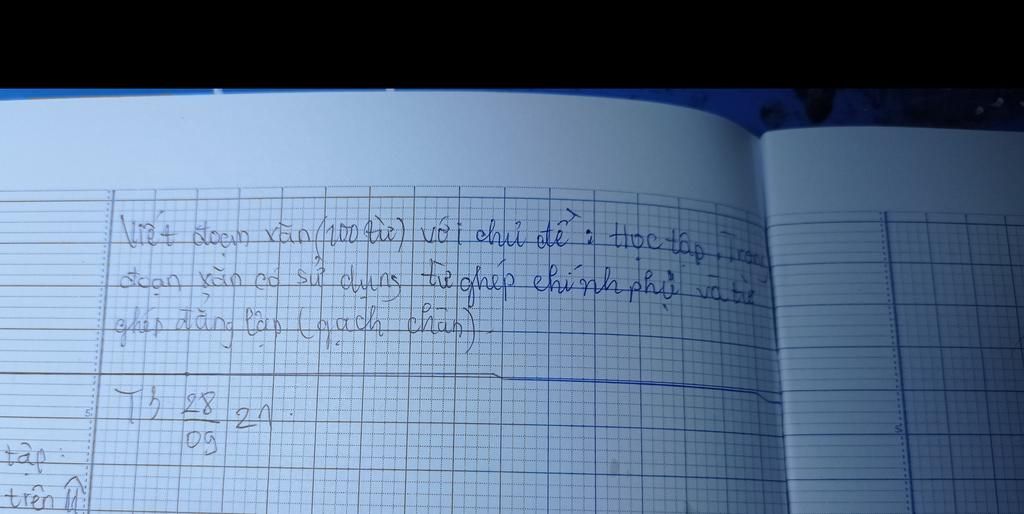 Viết đoạn văn (100 từ) với chủ đề: Học tập. Trong
đoạn văn có sử dụng từ ghép chính phụ và từ
ghép đẳng lập (gạch chân).
T3 28/09 21.
tập:
trên